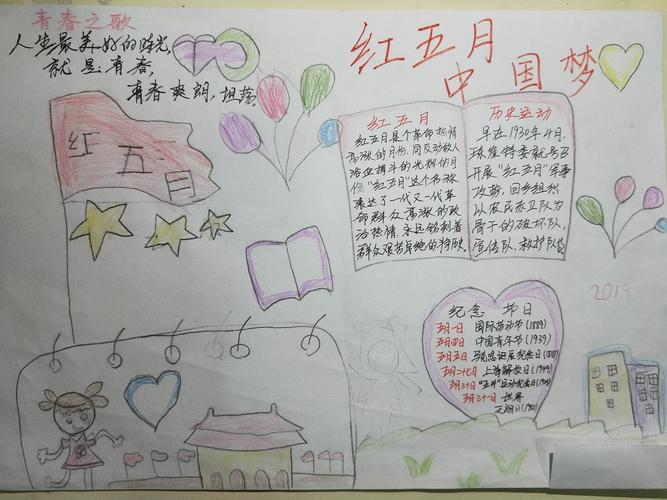 青春之歌
人生最美好的时光,
就是青春,
青春爽朗,坦荡
红五月
中国梦
红五月
红五月
红五月是个革命热情
高涨的月份,同反动敌人
浴血搏斗的光辉的月
份,“红五月”这个名称
表达了一代又一代革
命群众高涨的政
治热情,永远铭刻着
群众艰苦卓绝的
历史运动
早在1930年4月,
琼崖特委就号召
开展“红五月”军事
攻势,回乡组织
以农民赤卫队为
骨干的破坏队,
宣传队,救护队等
2019
纪念节日
五月一日 国际劳动节(1889)
五月四日 中国青年节(1939)
五月五日 马克思诞辰纪念日
五月二十七日 上海解放日(1949)
五月三十日 “五卅”运动纪念日
五月三十一日 世界
无烟日